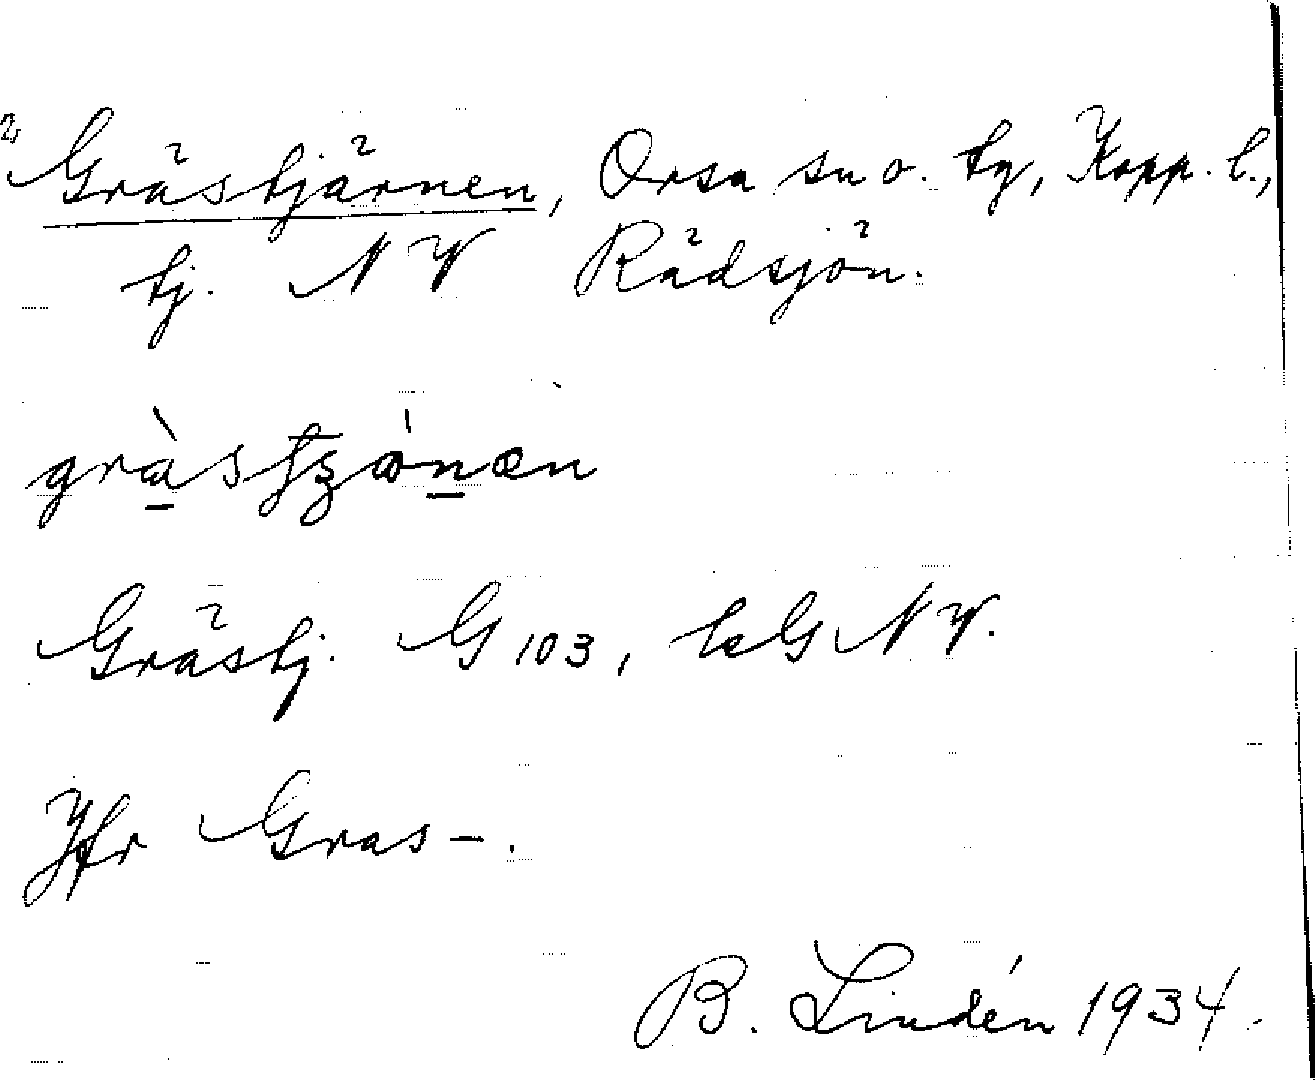 2 Grästjärnen, Orsa sn o. tg, Kopp. l.,
tj. NV Rädsjön.
Grästj. G 103, NV.
Jfr Gras-.
B. Lindén 1934.